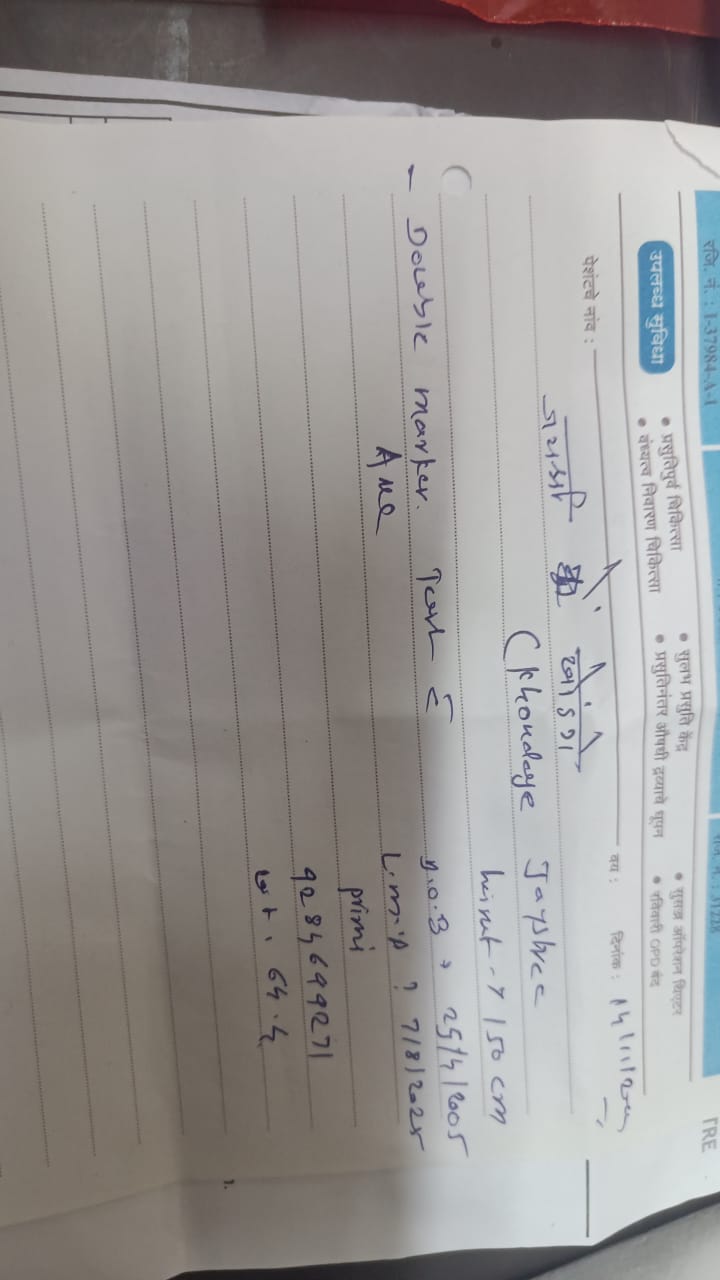 रजि. नं. : I-37984-A-1
TRE
उपलब्ध सुविधा
• प्रसुतिपुर्व चिकित्सा • सुलभ प्रसुति केंद्र • सुसज्ज ऑपरेशन थिएटर
• वंध्यत्व निवारण चिकित्सा • प्रसुतिनंतर औषधी द्रव्याचे धूपन • रविवारी OPD बंद
पेशंटचे नांव : वय : दिनांक : 14/11/2025
जयश्री खोंडगे
(Khondage Jayshree
height → 150 cm
D.O.B → 25/4/2005
- Double marker. Test c̄ L.m.p ? 7/8/2025
primi
9284699271
wt. 64.4
1.